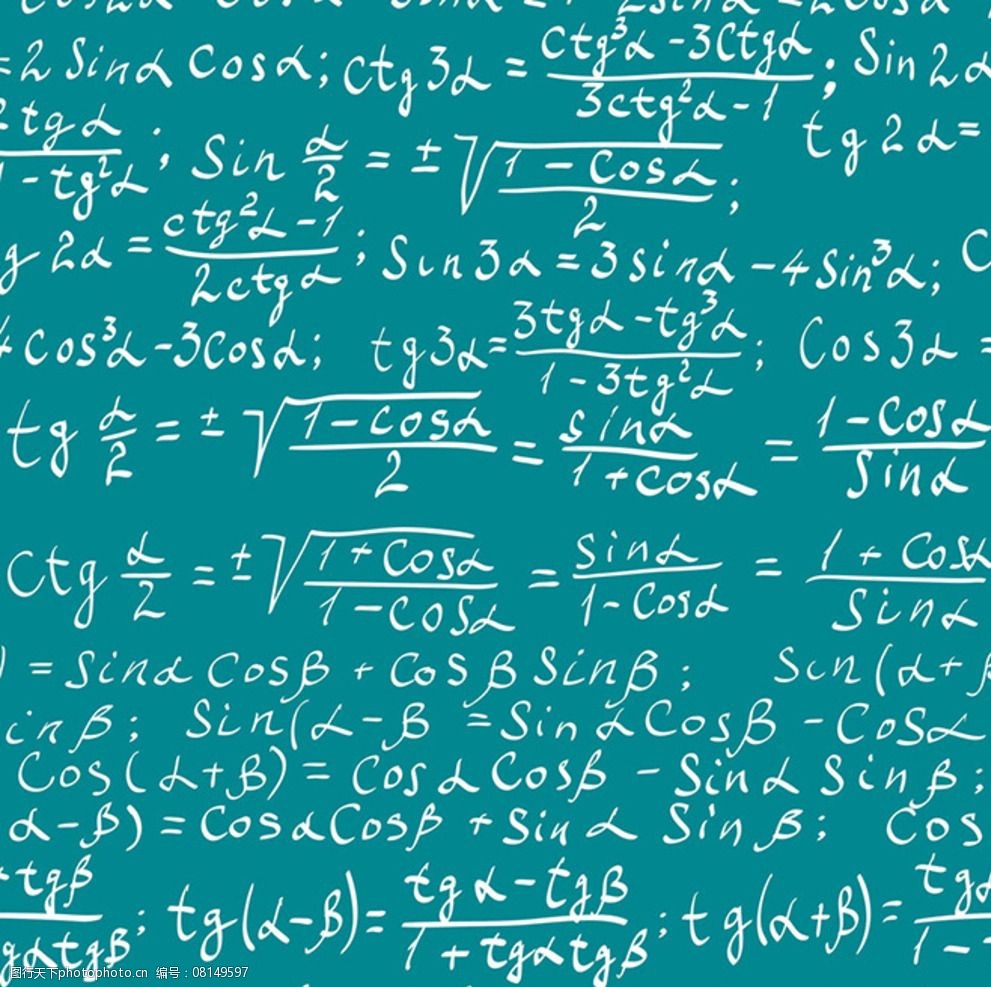 = 2 Sinα Cosα; ctg 3α = (ctg³α - 3Ctgα)/(3ctg²α - 1); Sin 2α
tgα/(1 - tg²α); Sin α/2 = ± √((1 - Cosα)/2); tg 2α =
g 2α = (ctg²α - 1)/(2ctgα); Sin 3α = 3sinα - 4Sin³α; C
4cos³α - 3Cosα; tg3α = (3tgα - tg³α)/(1 - 3tg²α); Cos3α =
tg α/2 = ± √((1 - cosα)/2) = sinα/(1 + cosα) = (1 - Cosα)/Sinα
Ctg α/2 = ± √((1 + Cosα)/(1 - Cosα)) = sinα/(1 - Cosα) = (1 + Cosα)/Sinα
) = Sinα Cosβ + Cosβ Sinβ; Sin(α+β
inβ; Sin(α-β = Sinα Cosβ - Cosα
Cos(α+β) = Cosα Cosβ - Sinα Sinβ;
α-β) = CosαCosβ + Sinα Sinβ; Cos
+ tgβ/gαtgβ; tg(α-β) = (tgα - tgβ)/(1 + tgαtgβ); tg(α+β) = tgα/1 -
图行天下photophoto.cn 编号：08149597